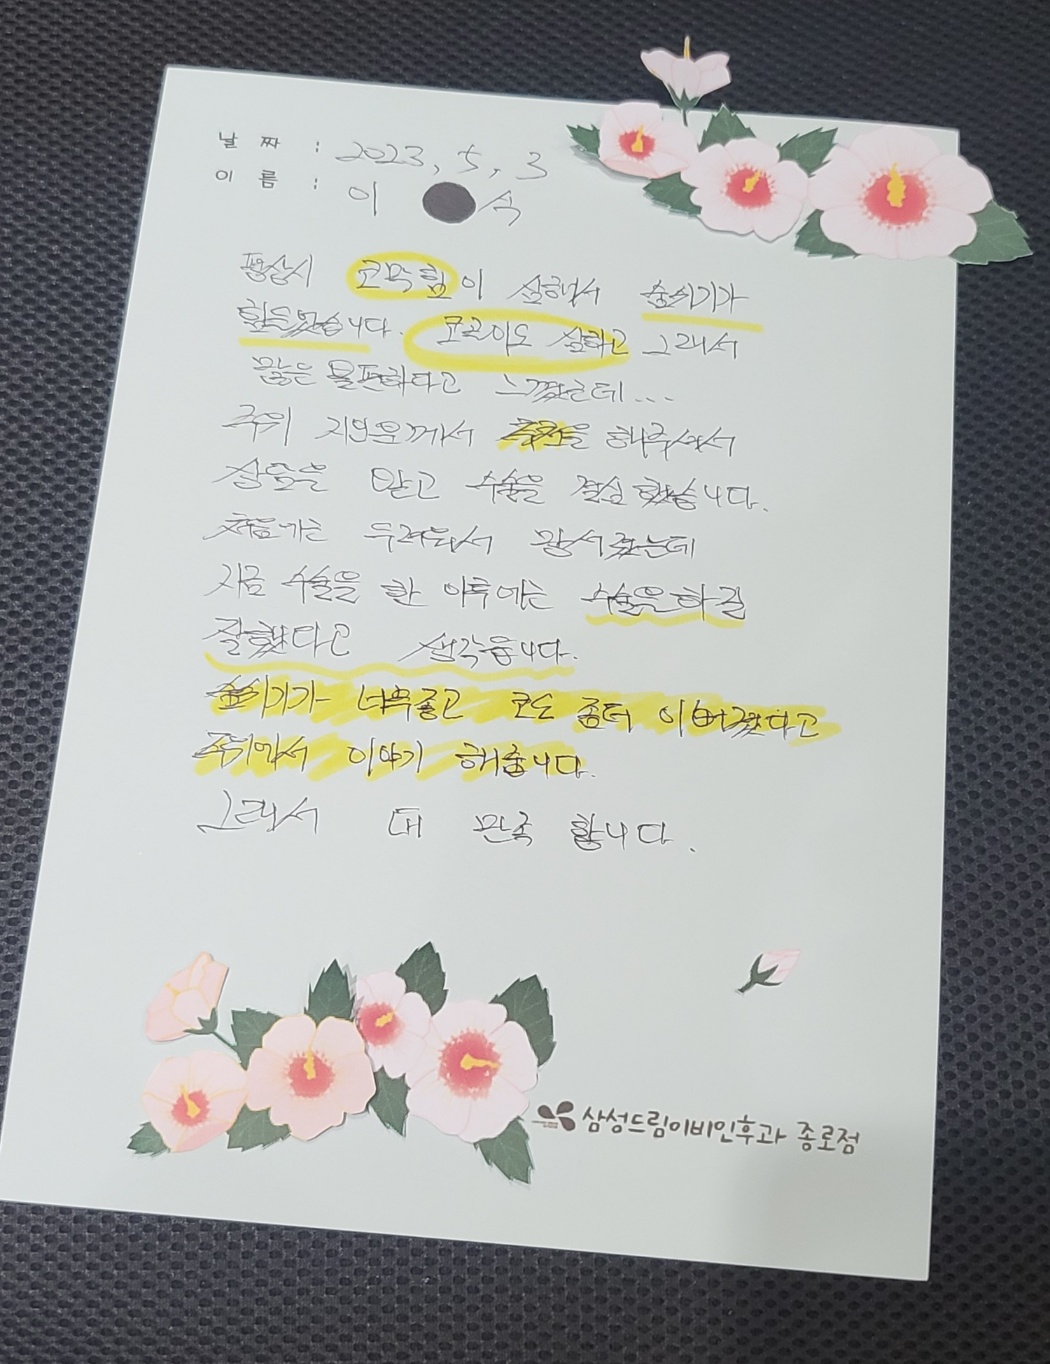 날 짜 : 2023, 5, 3
이 름 : 이 식
평상시 코막힘이 심해서 숨쉬기가
힘들었습니다. 코골이도 심하고 그래서
많은 불편하다고 느꼈는데...
주위 지인분께서 추천을 해주셔서
상담을 받고 수술을 결심했습니다.
처음에는 두려워서 망서렸는데
지금 수술을 한 이후에는 수술을 하길
잘했다고 생각듭니다.
숨쉬기가 너무좋고 코도 좀더 이뻐졌다고
주위에서 이야기 해줍니다.
그래서 대 만족 합니다.
삼성드림이비인후과 종로점